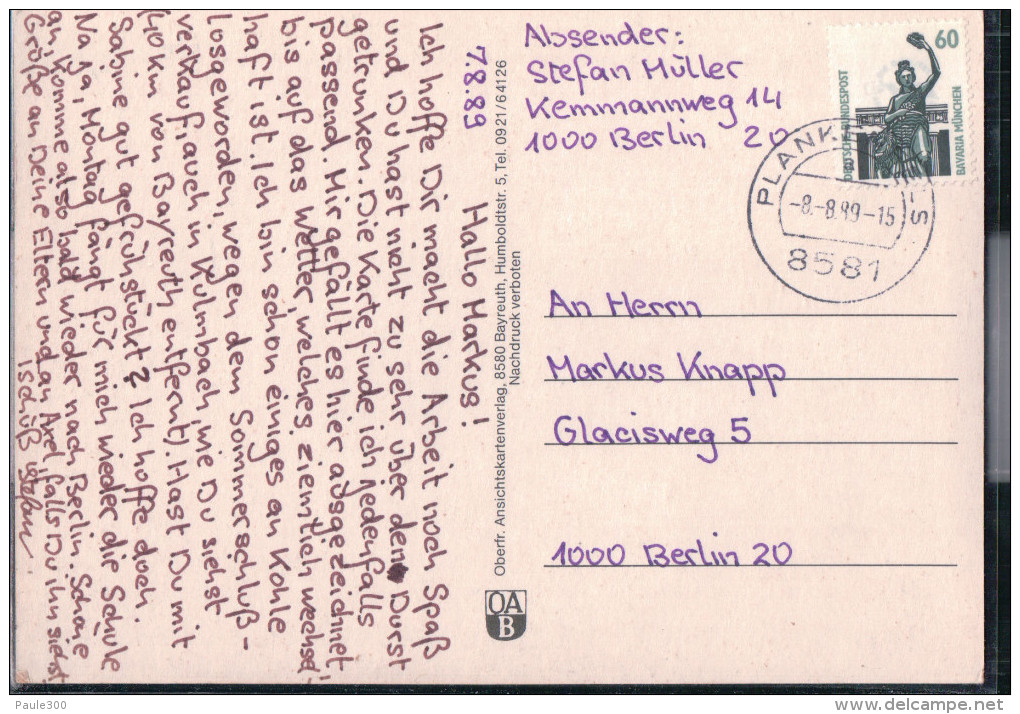 7.8.89
Hallo Markus!
Ich hoffe Dir macht die Arbeit noch Spaß
und Du hast nicht zu sehr über den Durst
getrunken. Die Karte finde ich jedenfalls
passend. Mir gefällt es hier ausgezeichnet
bis auf das Wetter welches ziemlich wechsel-
haft ist. Ich bin schon einiges an Kohle
losgeworden, wegen dem Sommerschluß-
verkauf auch in Kulmbach wie Du siehst
(40 km von Bayreuth entfernt). Hast Du mit
Sabine gut gefrühstückt? Ich hoffe doch.
Na ja, Montag fängt für mich wieder die Schule
an, komme also bald wieder nach Berlin. Schöne
Grüße an Deine Eltern und an Axel falls Du ihn siehst.
Tschüß Stefan
Oberfr. Ansichtskartenverlag, 8580 Bayreuth, Humboldtstr. 5, Tel. 0921/64126
Nachdruck verboten
OA
B
Absender:
Stefan Müller
Kemmannweg 14
1000 Berlin 20
60
DEUTSCHE BUNDESPOST
BAVARIA MÜNCHEN
-8.-8.89-15
8581
An Herrn
Markus Knapp
Glacisweg 5
1000 Berlin 20
Paule300